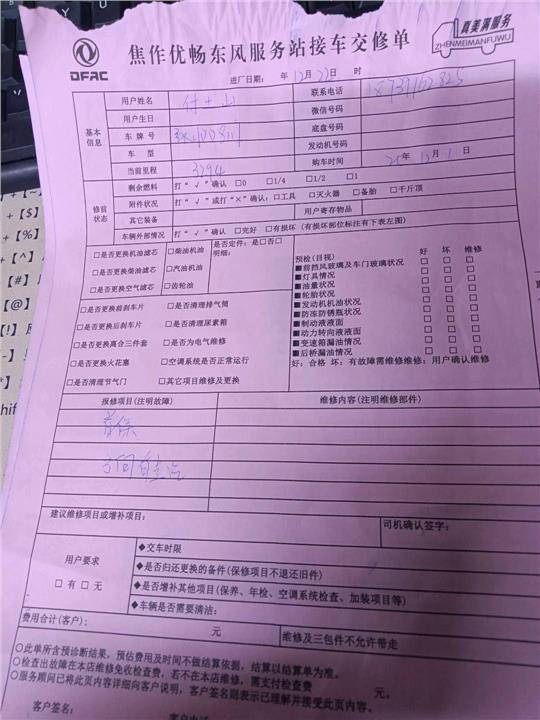 DFAC
焦作优畅东风服务站接车交修单
真美满服务
ZHENMEIMANFUWU
进厂日期： 年 12月 23日 时
基本信息
用户姓名
联系电话
用户生日
微信号码
车 牌 号
底盘号码
车 型
发动机号码
当前里程 3294
购车时间 年 12月 1日
修前状态
剩余燃料 打“√”确认 □0 □1/4 □1/2 □1
附件状况 打“√”或打“×”确认：□工具 □灭火器 □备胎 □千斤顶
其它装备 用户寄存物品
车辆外部情况 打“√”确认 □完好 □有损坏（有损坏部位标注有下表左图）
□是否更换机油滤芯 □柴油机油
□是否更换柴油滤芯 □汽油机油
□是否更换空气滤芯 □齿轮油
是否定件：是□否□
明细：
□是否更换前刹车片 □是否清理排气筒
□是否更换后刹车片 □是否清理尿素箱
□是否更换离合三件套 □是否为电气维修
□是否更换火花塞 □空调系统是否正常运行
□是否清理节气门 □其它项目维修及更换
预检(目视) 好 坏 维修
■前挡风玻璃及车门玻璃状况 □ □ □
■灯具情况 □ □ □
■油量状况 □ □ □
■轮胎状况 □ □ □
■发动机机油状况 □ □ □
■防冻防锈瓶状况 □ □ □
■制动液液面 □ □ □
■动力转向液液面 □ □ □
■变速箱漏油情况 □ □ □
■后桥漏油情况 □ □ □
好：合格 坏：有故障需维修维修：用户确认维修
报修项目(注明故障) 维修内容(注明维修部件)
首保
建议维修项目或增补项目：
司机确认签字：
用户要求
□ 有 □ 无
◆交车时限
◆是否归还更换的备件(保修项目不退还旧件)
◆是否增补其他项目(保养、年检、空调系统检查、加装项目等)
◆车辆是否需要清洁：
费用合计(客户)： 元 维修及三包件不允许带走
○此单所含预诊断结果，预估费用及时间不做结算依据，结算以结算单为准。
○检查出故障在本店维修免收检查费，若不在本店维修，需支付检查费 元。
○服务顾问已将此页内容详细向客户说明，客户签名则表示已理解并接受此页内容。
客户签名：